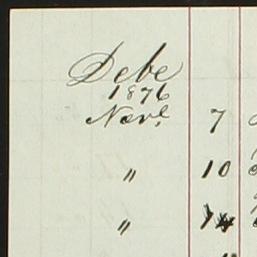 Debe
1876
Nov. 7
" 10
" 14